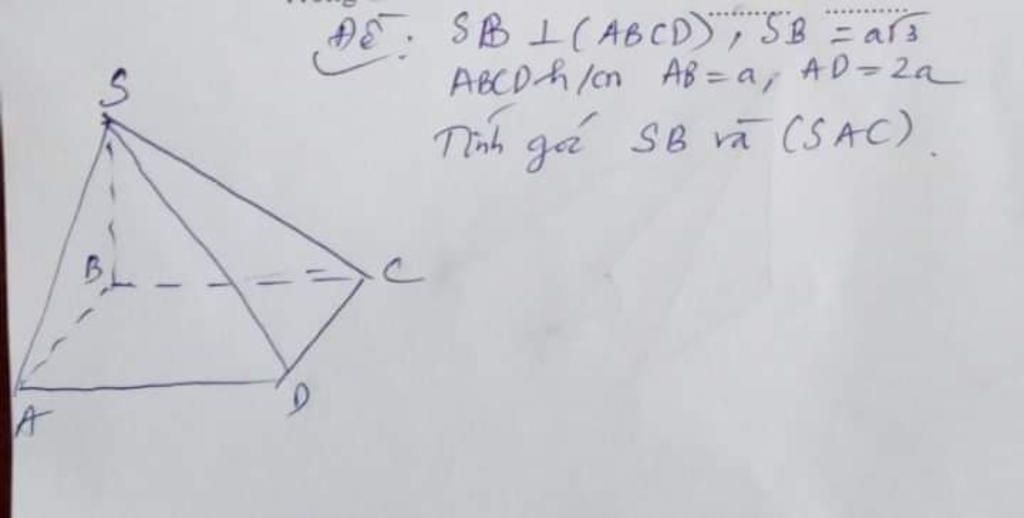 ĐỀ: SB ⊥ (ABCD), SB = a√3
ABCD h/cn AB = a, AD = 2a
Tính góc SB và (SAC).
S
B
C
A
D